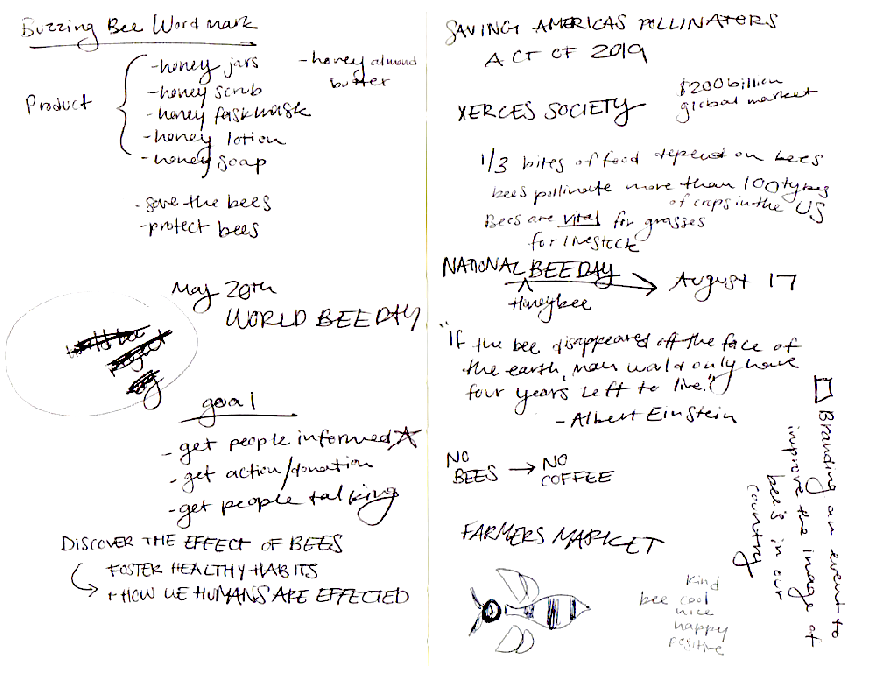 Buzzing Bee Word mark
Product
- honey jars
- honey scrub
- honey faskmask
- honey lotion
- honey soap
- honey almond
butter
- save the bees
- protect bees
May 20th
WORLD BEE DAY
goal
- get people informed
- get action/donation
- get people talking
DISCOVER THE EFFECT OF BEES
FOSTER HEALTHY HABITS
+ HOW WE HUMANS ARE EFFECTED
SAVING AMERICAS POLLINATORS
ACT OF 2019
XERCES SOCIETY
$200 billion
global market
1/3 bites of food depend on bees
bees pollinate more than 100 types
of crops in the US
Bees are vital for grasses
for livestock
NATIONAL BEE DAY → August 17
Honeybee
"If the bee disappeared off the face of
the earth, man would only have
four years left to live."
- Albert Einstein
NO
BEES → NO
COFFEE
FARMERS MARKET
kind
bee cool
nice
happy
positive
Branding an event to
improve the image of
bee's in our
country